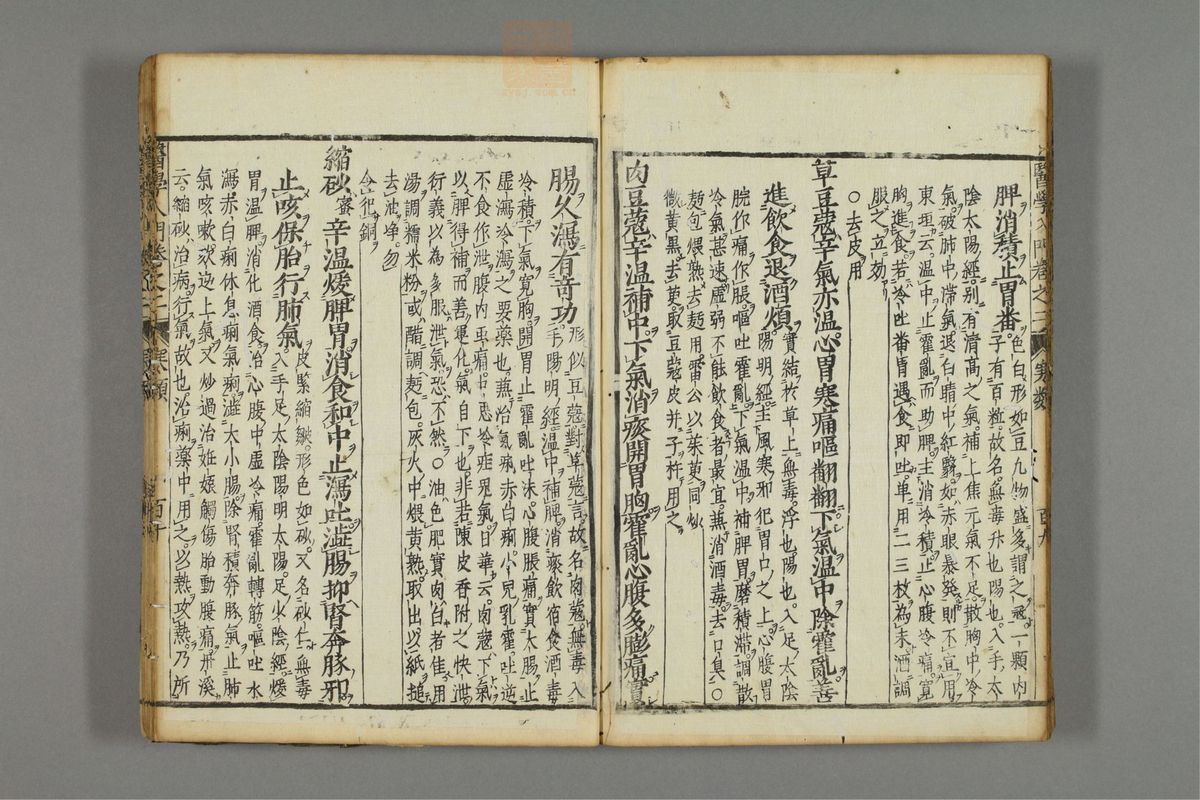 脾消積止胃番
色白形如豆九物盛多謂之寇一顆內
子有百粒故名無毒升也陽也入手太
陰太陽經別有清高之氣補上焦元氣不足散胸中冷
氣破肺中滯氣退白睛中紅瞖如赤眼暴發則不宜用
東垣云溫中止霍亂而助脾主消冷積止心腹冷痛寬
胸進食若冷吐番胃遇食即吐單用二三枚為末酒調
服之立効
○去皮用
草豆蔻辛氣亦溫心胃寒痛嘔翻翻下氣溫中除霍亂善
進飲食退酒煩
實結於草上無毒浮也陽也入足太陰
陽明經主風寒邪犯胃口之上心腹胃
脘作痛作脹嘔吐霍亂下氣溫中補脾胃磨積滯調散
冷氣甚速虛弱不能飲食者最宜兼消酒毒去口臭○
麵包煨熟去麵用雷公以茱萸同炒
微黃黑去萸取豆蔻皮并子杵用之
肉豆蔻辛溫補中下氣消痰開胃胸霍亂心腹多膨痛實
腸久瀉有奇功
形似豆蔻對草蔻言故名肉蔻無毒入
手陽明經溫中補脾消痰飲宿食酒毒
冷積下氣寬胸開胃止霍亂吐沫心腹脹痛實大腸止
虛瀉冷瀉之要藥也兼治氣痢赤白痢小兒乳霍吐逆
不食作泄腹內虫痛
日華云肉蔻下氣
以脾得補而善運化氣自下也非若陳皮香附之快泄
衍義以為多服泄氣恐不然○油色肥實肉白者佳用
湯調糯米粉或醋調麵包灰火中煨黃熟取出以紙搥
去油淨勿
令犯銅
縮砂蜜辛溫煖脾胃消食和中止瀉吐澁腸抑腎奔豚邪
止咳保胎行肺氣
皮緊縮皺形色如砂又名砂仁無毒
入手足太陰陽明太陽足少陰經煖
胃溫脾消化酒食治心腹中虛冷痛霍亂轉筋嘔吐水
瀉赤白痢休息痢氣痢澁大小腸除腎積奔豚氣止肺
氣咳嗽欬逆上氣又炒過治妊娠觸傷胎動腹痛丹溪
云縮砂治病行氣故也治痢藥中用之以熱攻熱乃所